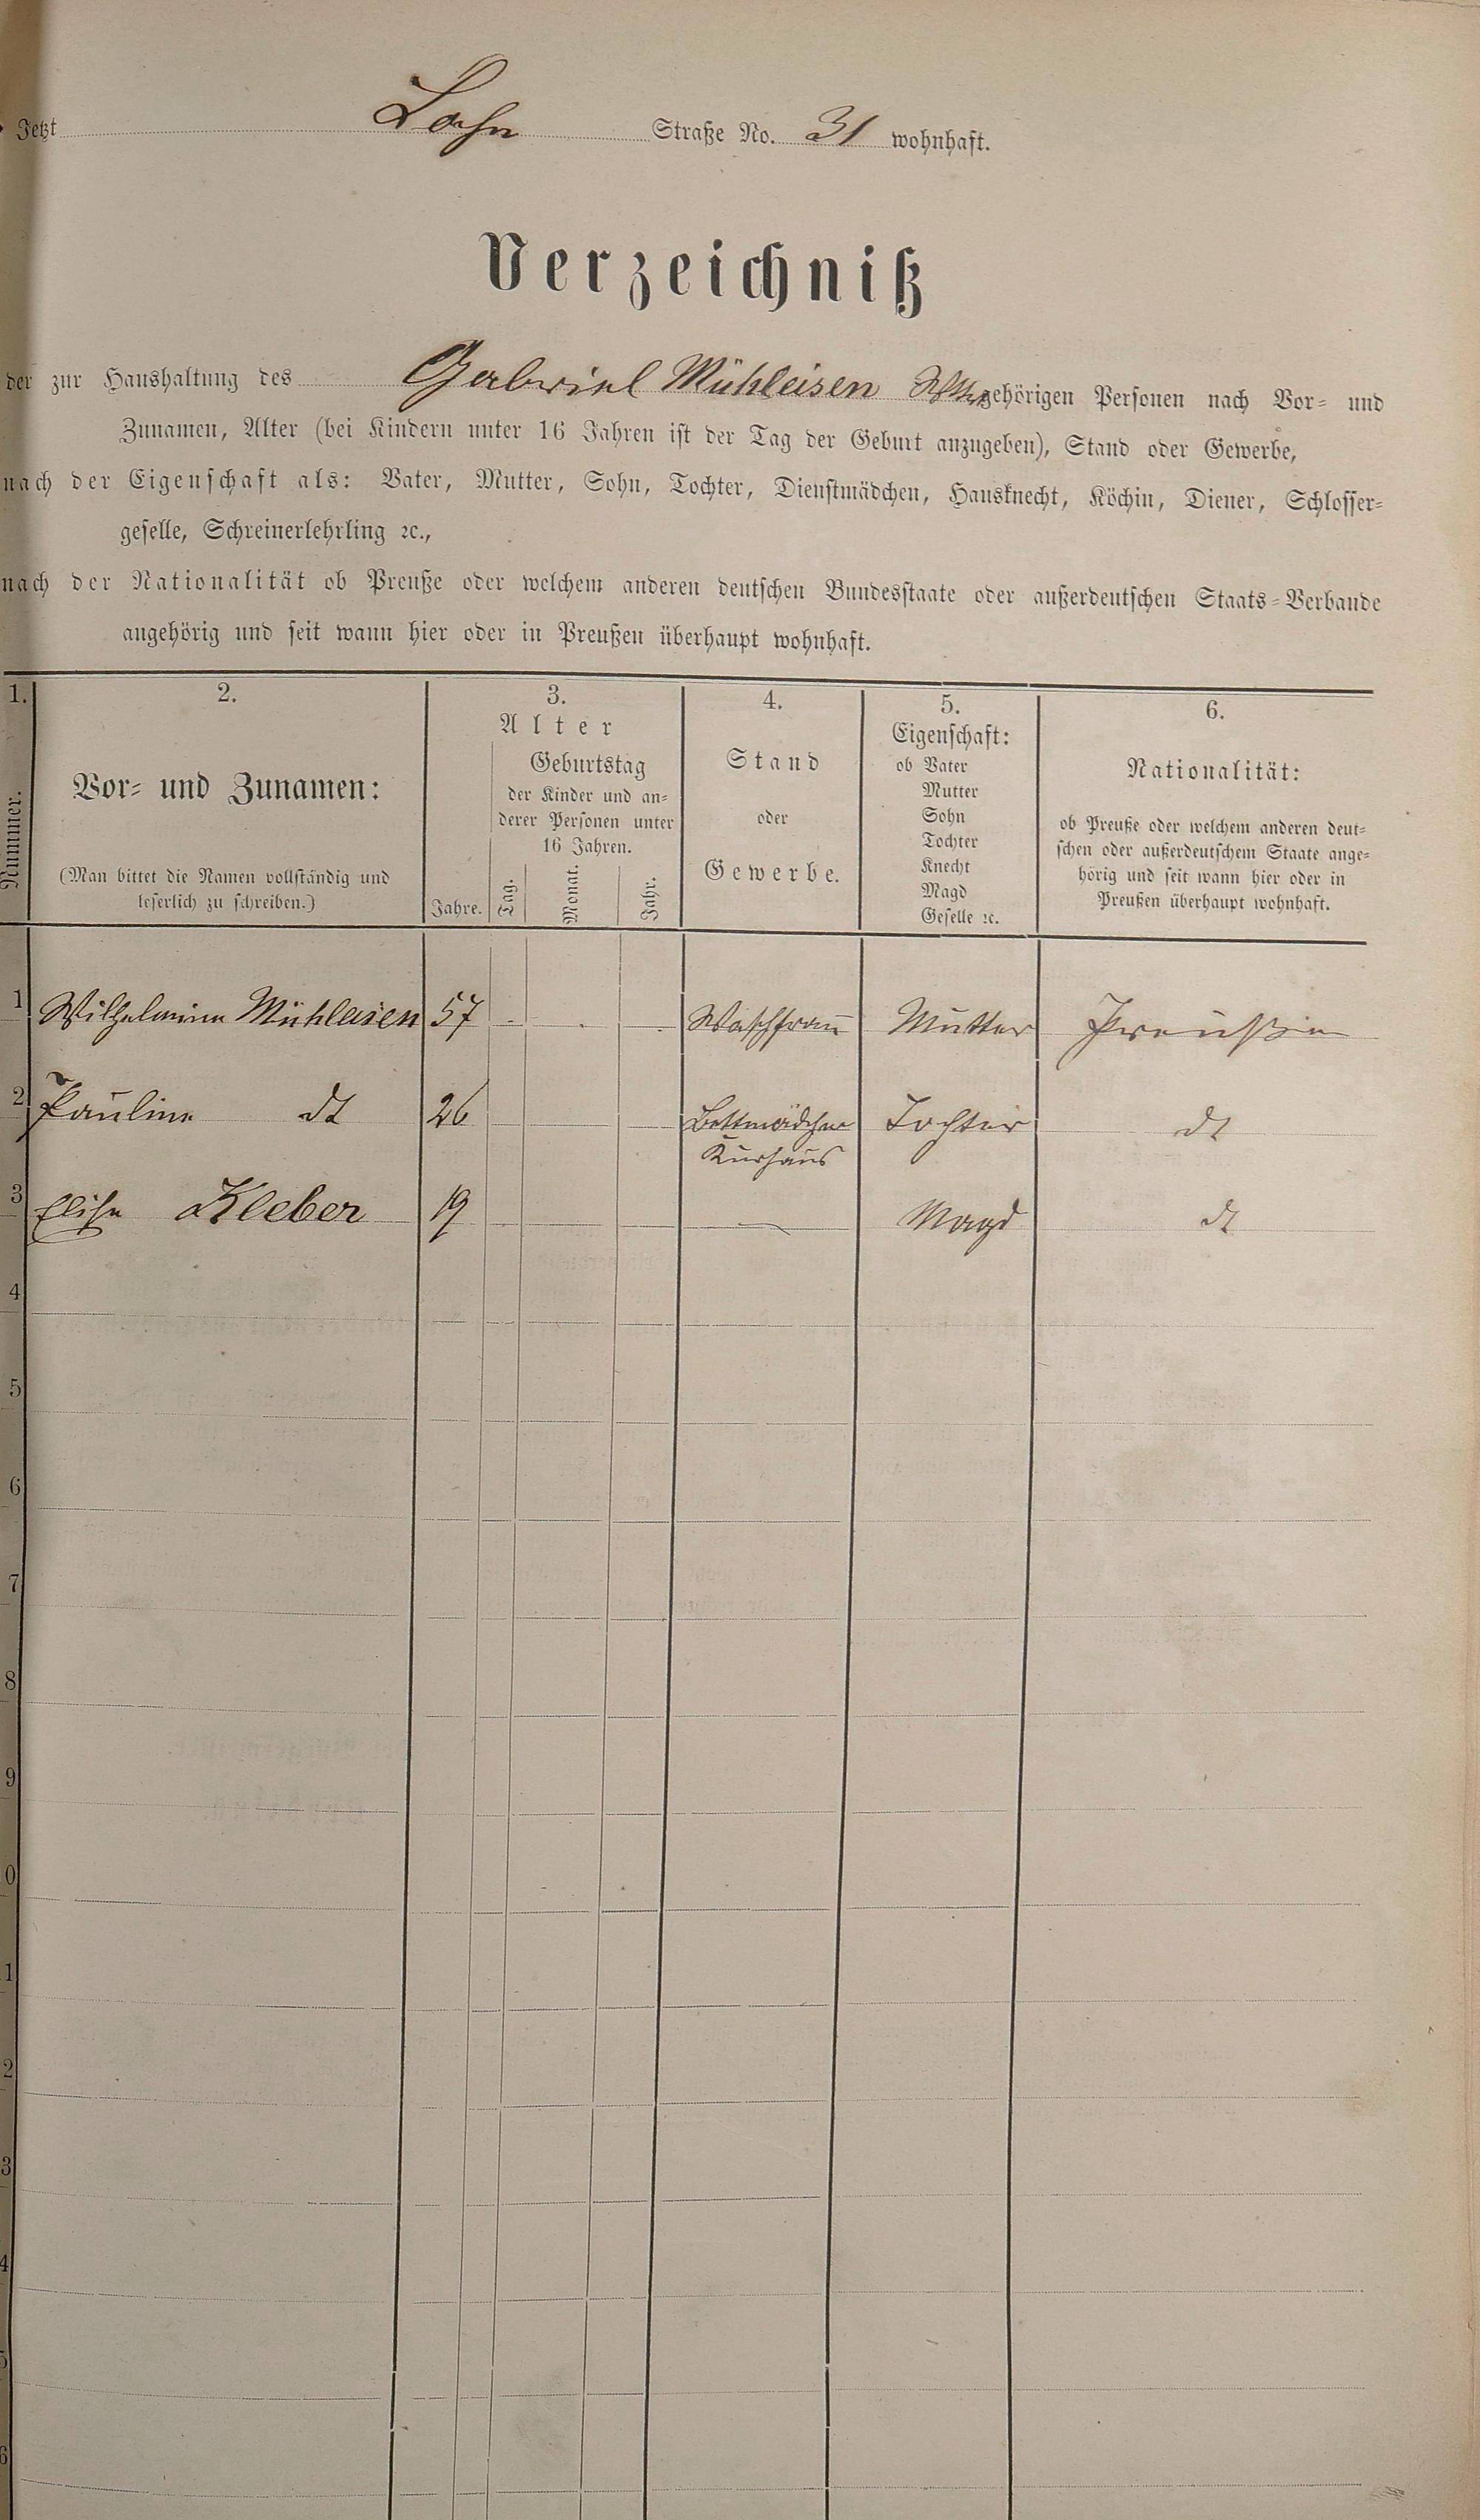 Jetzt Lahn Straße No. 31 wohnhaft.
Verzeichniß
der zur Haushaltung des Gabriel Mühleisen gehörigen Personen nach Vor- und
Zunamen, Alter (bei Kindern unter 16 Jahren ist der Tag der Geburt anzugeben), Stand oder Gewerbe,
nach der Eigenschaft als: Vater, Mutter, Sohn, Tochter, Dienstmädchen, Hausknecht, Köchin, Diener, Schlosser-
geselle, Schreinerlehrling ꝛc.,
nach der Nationalität ob Preuße oder welchem anderen deutschen Bundesstaate oder außerdeutschen Staats-Verbande
angehörig und seit wann hier oder in Preußen überhaupt wohnhaft.
1.
Nummer.
2.
Vor- und Zunamen:
(Man bittet die Namen vollständig und
leserlich zu schreiben.)
3.
Alter
Jahre.
Geburtstag
der Kinder und an-
derer Personen unter
16 Jahren.
Tag. Monat. Jahr.
4.
Stand
oder
Gewerbe.
5.
Eigenschaft:
ob Vater
Mutter
Sohn
Tochter
Knecht
Magd
Geselle ꝛc.
6.
Nationalität:
ob Preuße oder welchem anderen deut-
schen oder außerdeutschem Staate ange-
hörig und seit wann hier oder in
Preußen überhaupt wohnhaft.
1 Wilhelmine Mühleisen 57 Waschfrau Mutter Preußin
2 Pauline dt 26 Bettmädchen Tochter dt
Kurhaus
3 Elise Kleber 19 — Magd dt
4
5
6
7
8
9
0
1
2
3
4
5
6